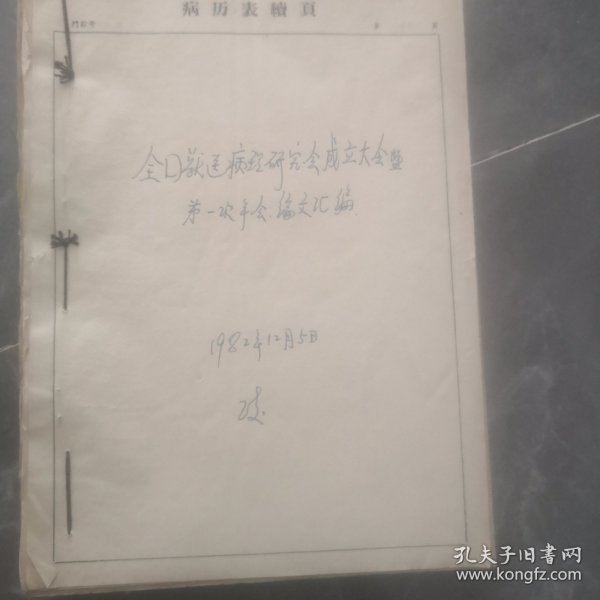 病历表續頁
门诊号
全囗兽医病理研究会成立大会暨
第一次年会论文汇编
1982年12月5日
孔夫子旧书网
www.kongfz.com